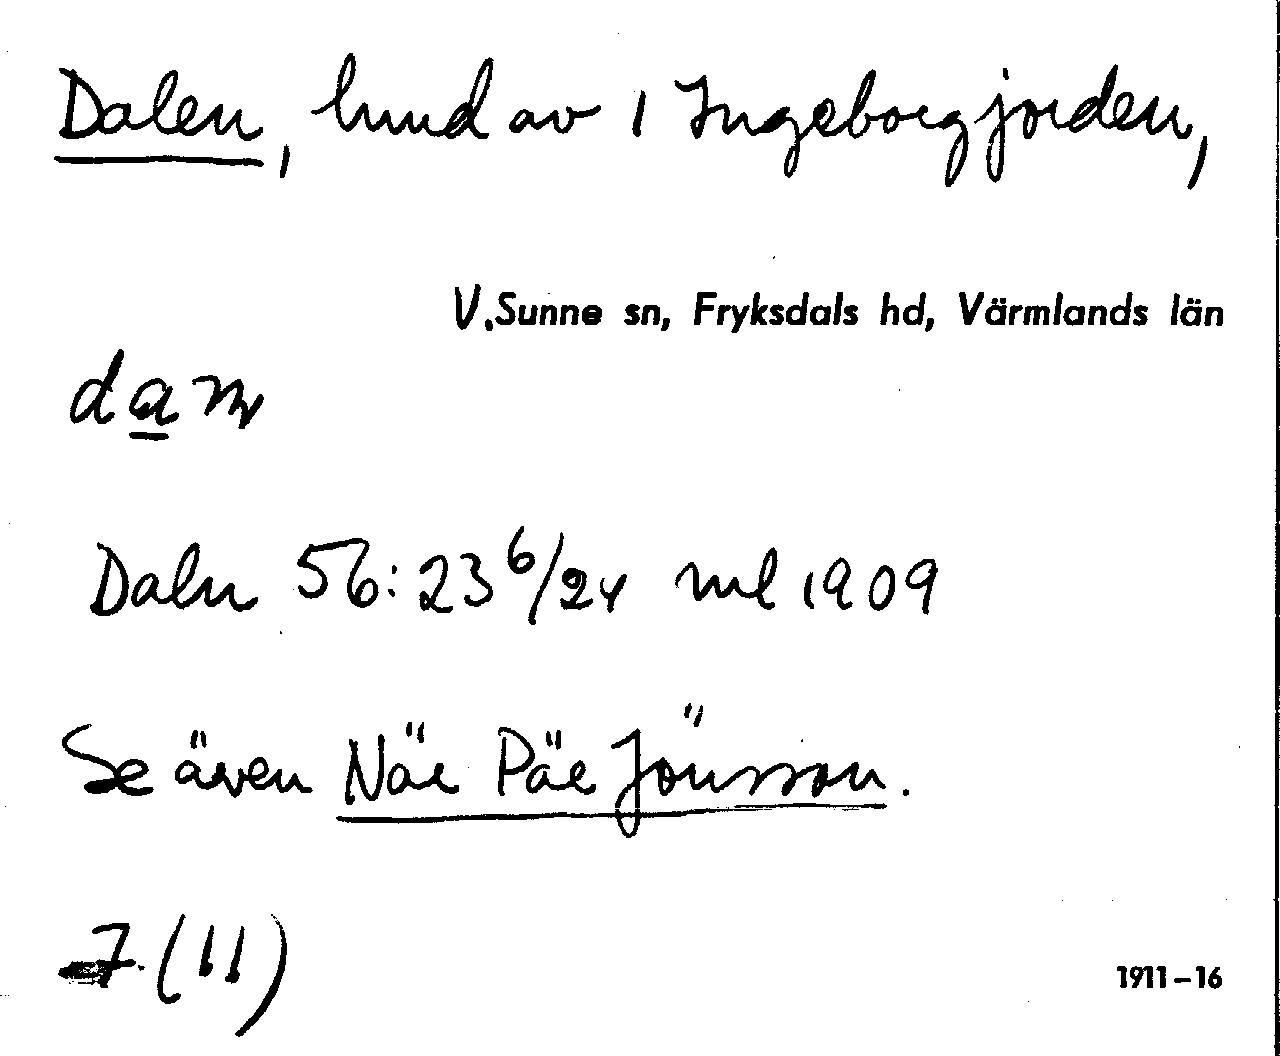 Dalen, hmd av 1 Ingeborgjorden,
V. Sunne sn, Fryksdals hd, Värmlands län
Dalн 56:23 6/24 ml 1909
Se även Näe Päe Jönsson.
7 (11)
1911–16